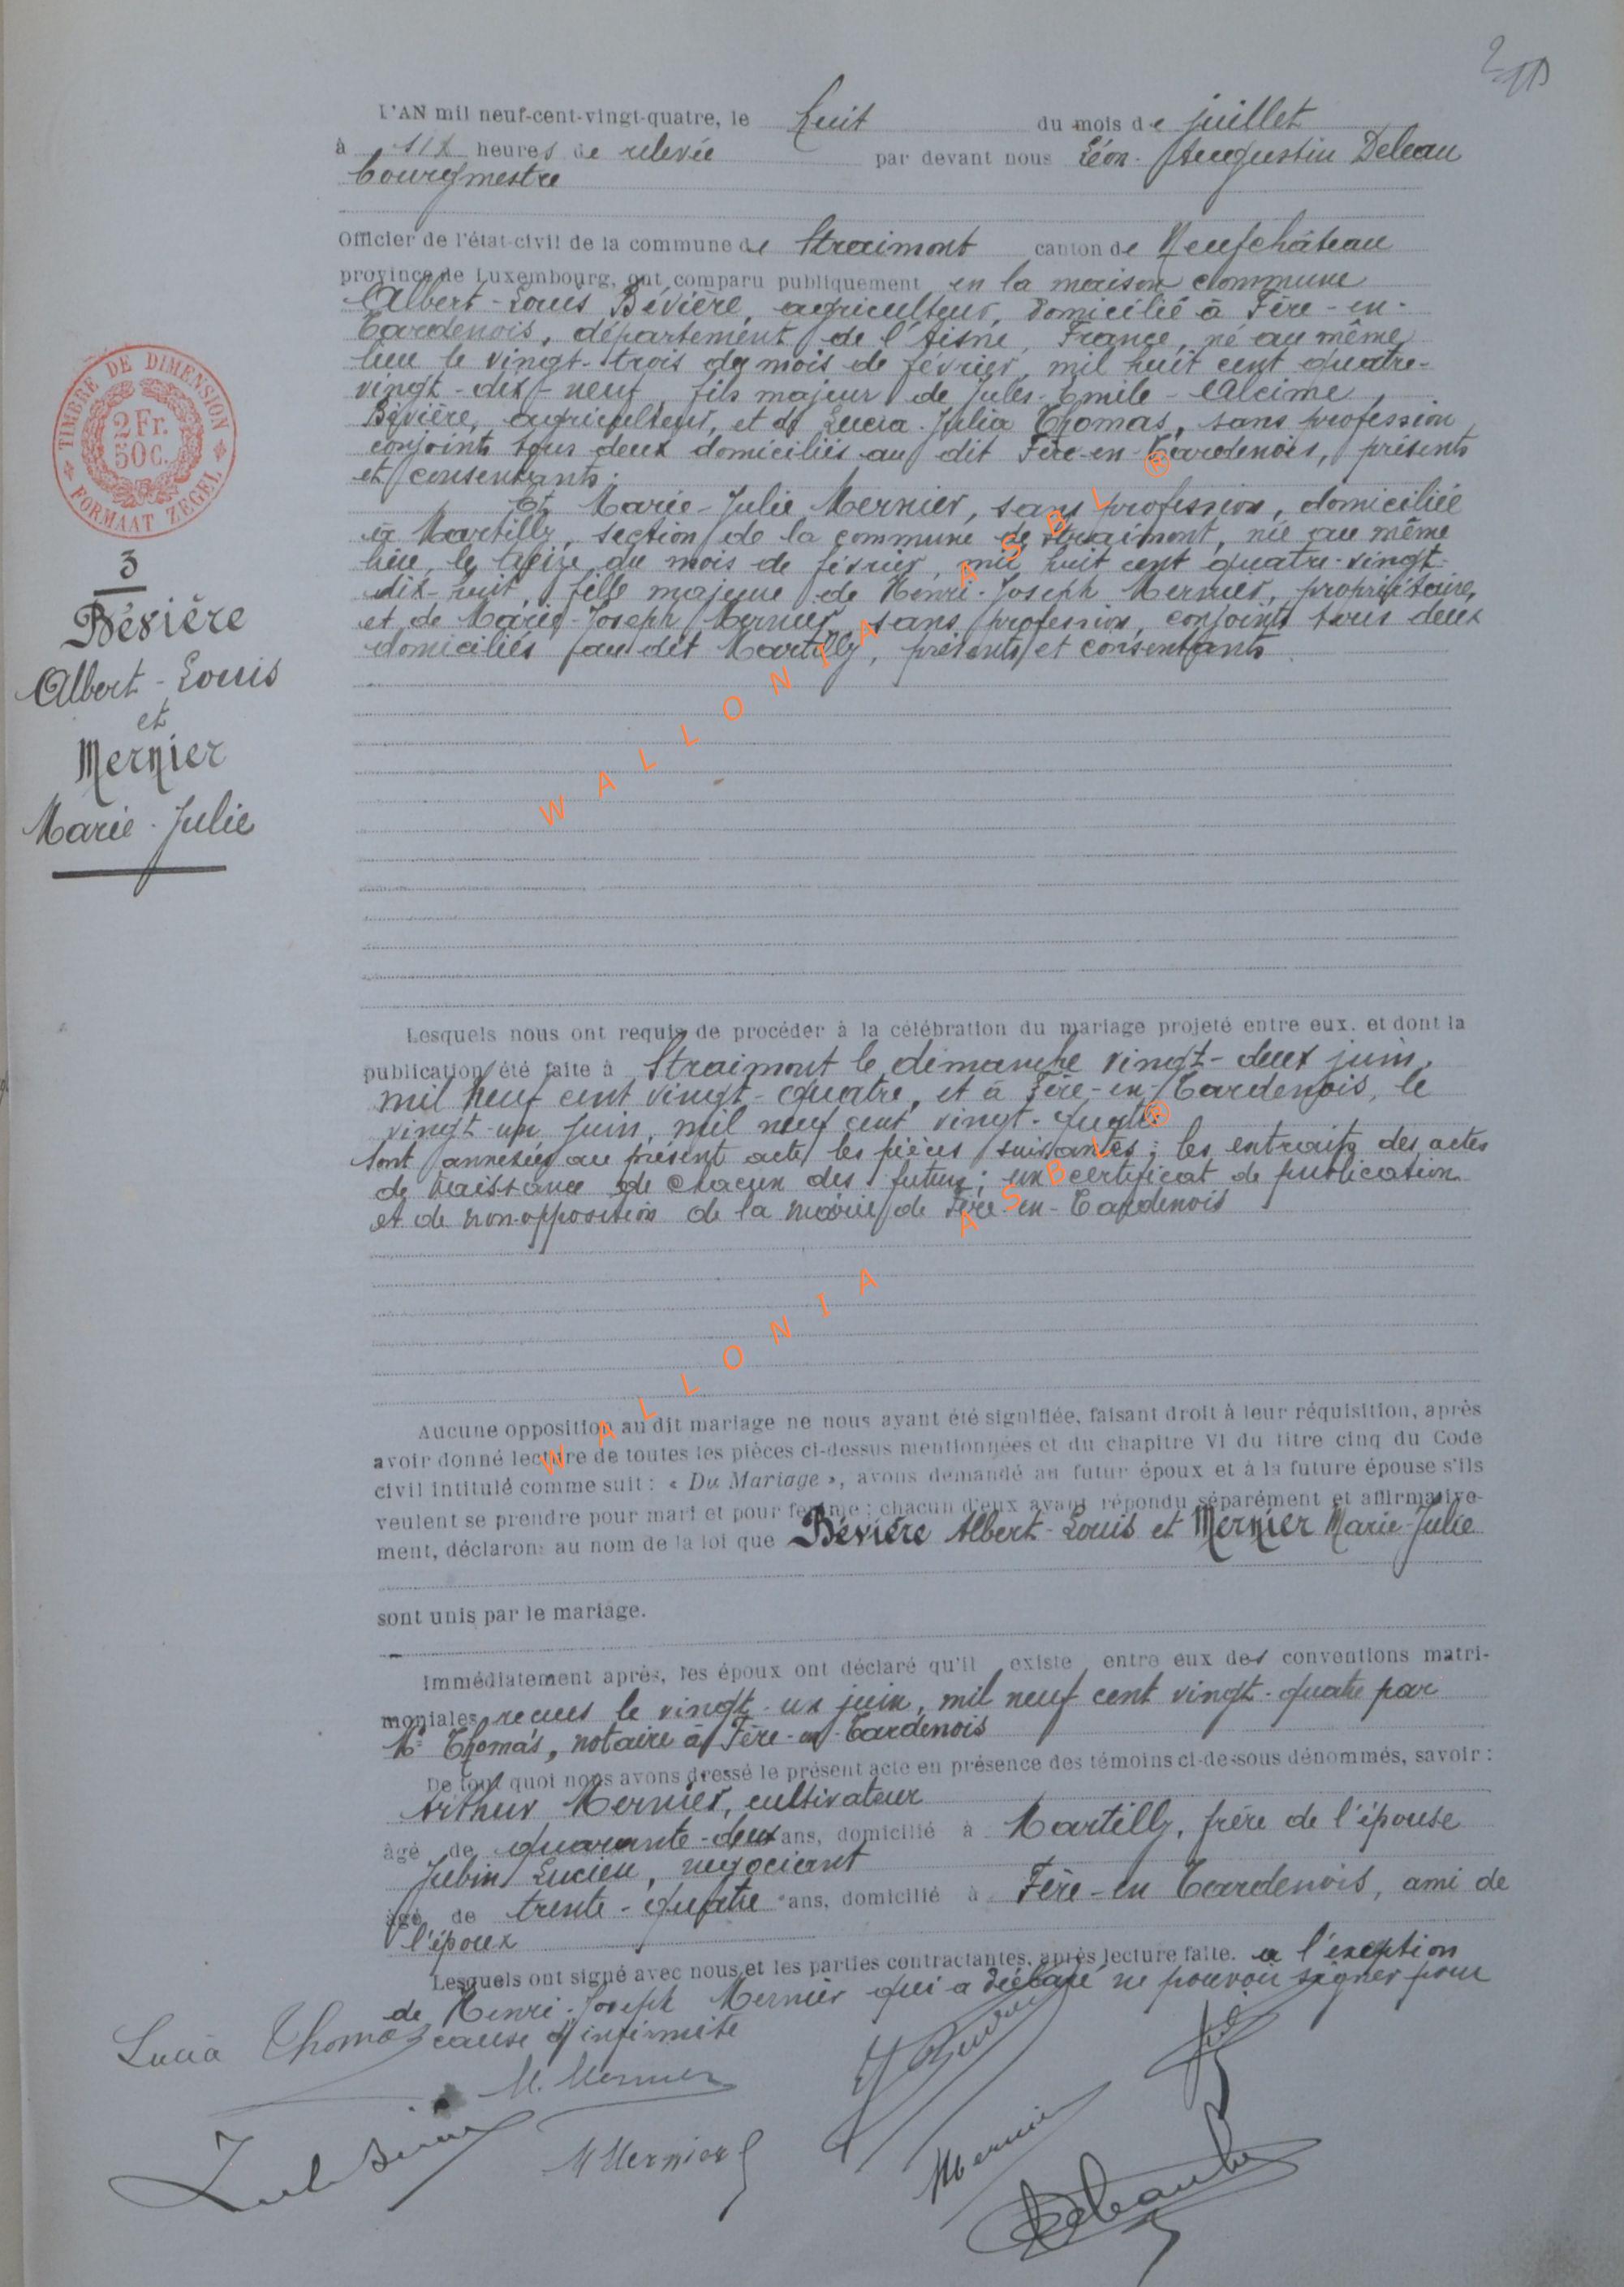 L'AN mil neuf-cent-vingt-quatre, le huit du mois de juillet
à six heures de relevée par devant nous Léon-Augustin Deleau
bourgmestre
Officier de l'état-civil de la commune de Straimont canton de Neufchâteau
province de Luxembourg, ont comparu publiquement en la maison commune
Albert-Louis Bévière, agriculteur, domicilié à Fère-en-
Tardenois, département de l'Aisne, France, né au même
lieu le vingt-trois du mois de février, mil huit cent quatre-
vingt-dix-neuf, fils majeur de Jules-Emile-Alcime
Bévière, agriculteur, et de Lucia-Julia Thomas, sans profession
conjoints tous deux domiciliés au dit Fère-en-Tardenois, présents
et consentants;
TIMBRE DE DIMENSION
2 Fr.
50 C.
FORMAAT ZEGEL
Et Marie-Julie Mernier, sans profession, domiciliée
à Martilly, section de la commune de Straimont, née au même
lieu, le treize du mois de février, mil huit cent quatre-vingt-
dix-huit, fille majeure de Henri-Joseph Mernier, propriétaire,
et de Marie-Joseph Mernier, sans profession, conjoints tous deux
domiciliés au dit Martilly, présents et consentants
3
Bévière
Albert-Louis
et
Mernier
Marie-Julie
WALLONIA ASBL ®
Lesquels nous ont requis de procéder à la célébration du mariage projeté entre eux, et dont la
publication été faite à Straimont le dimanche vingt-deux juin,
mil neuf cent vingt-quatre, et à Fère-en-Tardenois, le
vingt-un juin, mil neuf cent vingt-quatre
Sont annexées au présent acte les pièces suivantes: les extraits des actes
de naissance de chacun des futurs; un certificat de publication
et de non-opposition de la mairie de Fère-en-Tardenois
WALLONIA ASBL ®
Aucune opposition au dit mariage ne nous ayant été signifiée, faisant droit à leur réquisition, après
avoir donné lecture de toutes les pièces ci-dessus mentionnées et du chapitre VI du titre cinq du Code
civil intitulé comme suit : « Du Mariage », avons demandé au futur époux et à la future épouse s'ils
veulent se prendre pour mari et pour femme ; chacun d'eux ayant répondu séparément et affirmative-
ment, déclarons au nom de la loi que Bévière Albert-Louis et Mernier Marie-Julie
sont unis par le mariage.
Immédiatement après, les époux ont déclaré qu'il existe entre eux des conventions matri-
moniales recues le vingt-un juin, mil neuf cent vingt-quatre par
Me Thomas, notaire à Fère-en-Tardenois
De tout quoi nous avons dressé le présent acte en présence des témoins ci-dessous dénommés, savoir :
Arthur Mernier, cultivateur
âgé de quarante-deux ans, domicilié à Martilly, frère de l'épouse
Jubin Lucien, négociant
âgé de trente-quatre ans, domicilié à Fère-en Tardenois, ami de
l'époux
Lesquels ont signé avec nous et les parties contractantes, après lecture faite. à l'exception
de Henri-Joseph Mernier qui a déclaré ne pouvoir signer pour
cause d'infirmité
Lucia Thomas
M. Mernier
M Mernier
Mernier